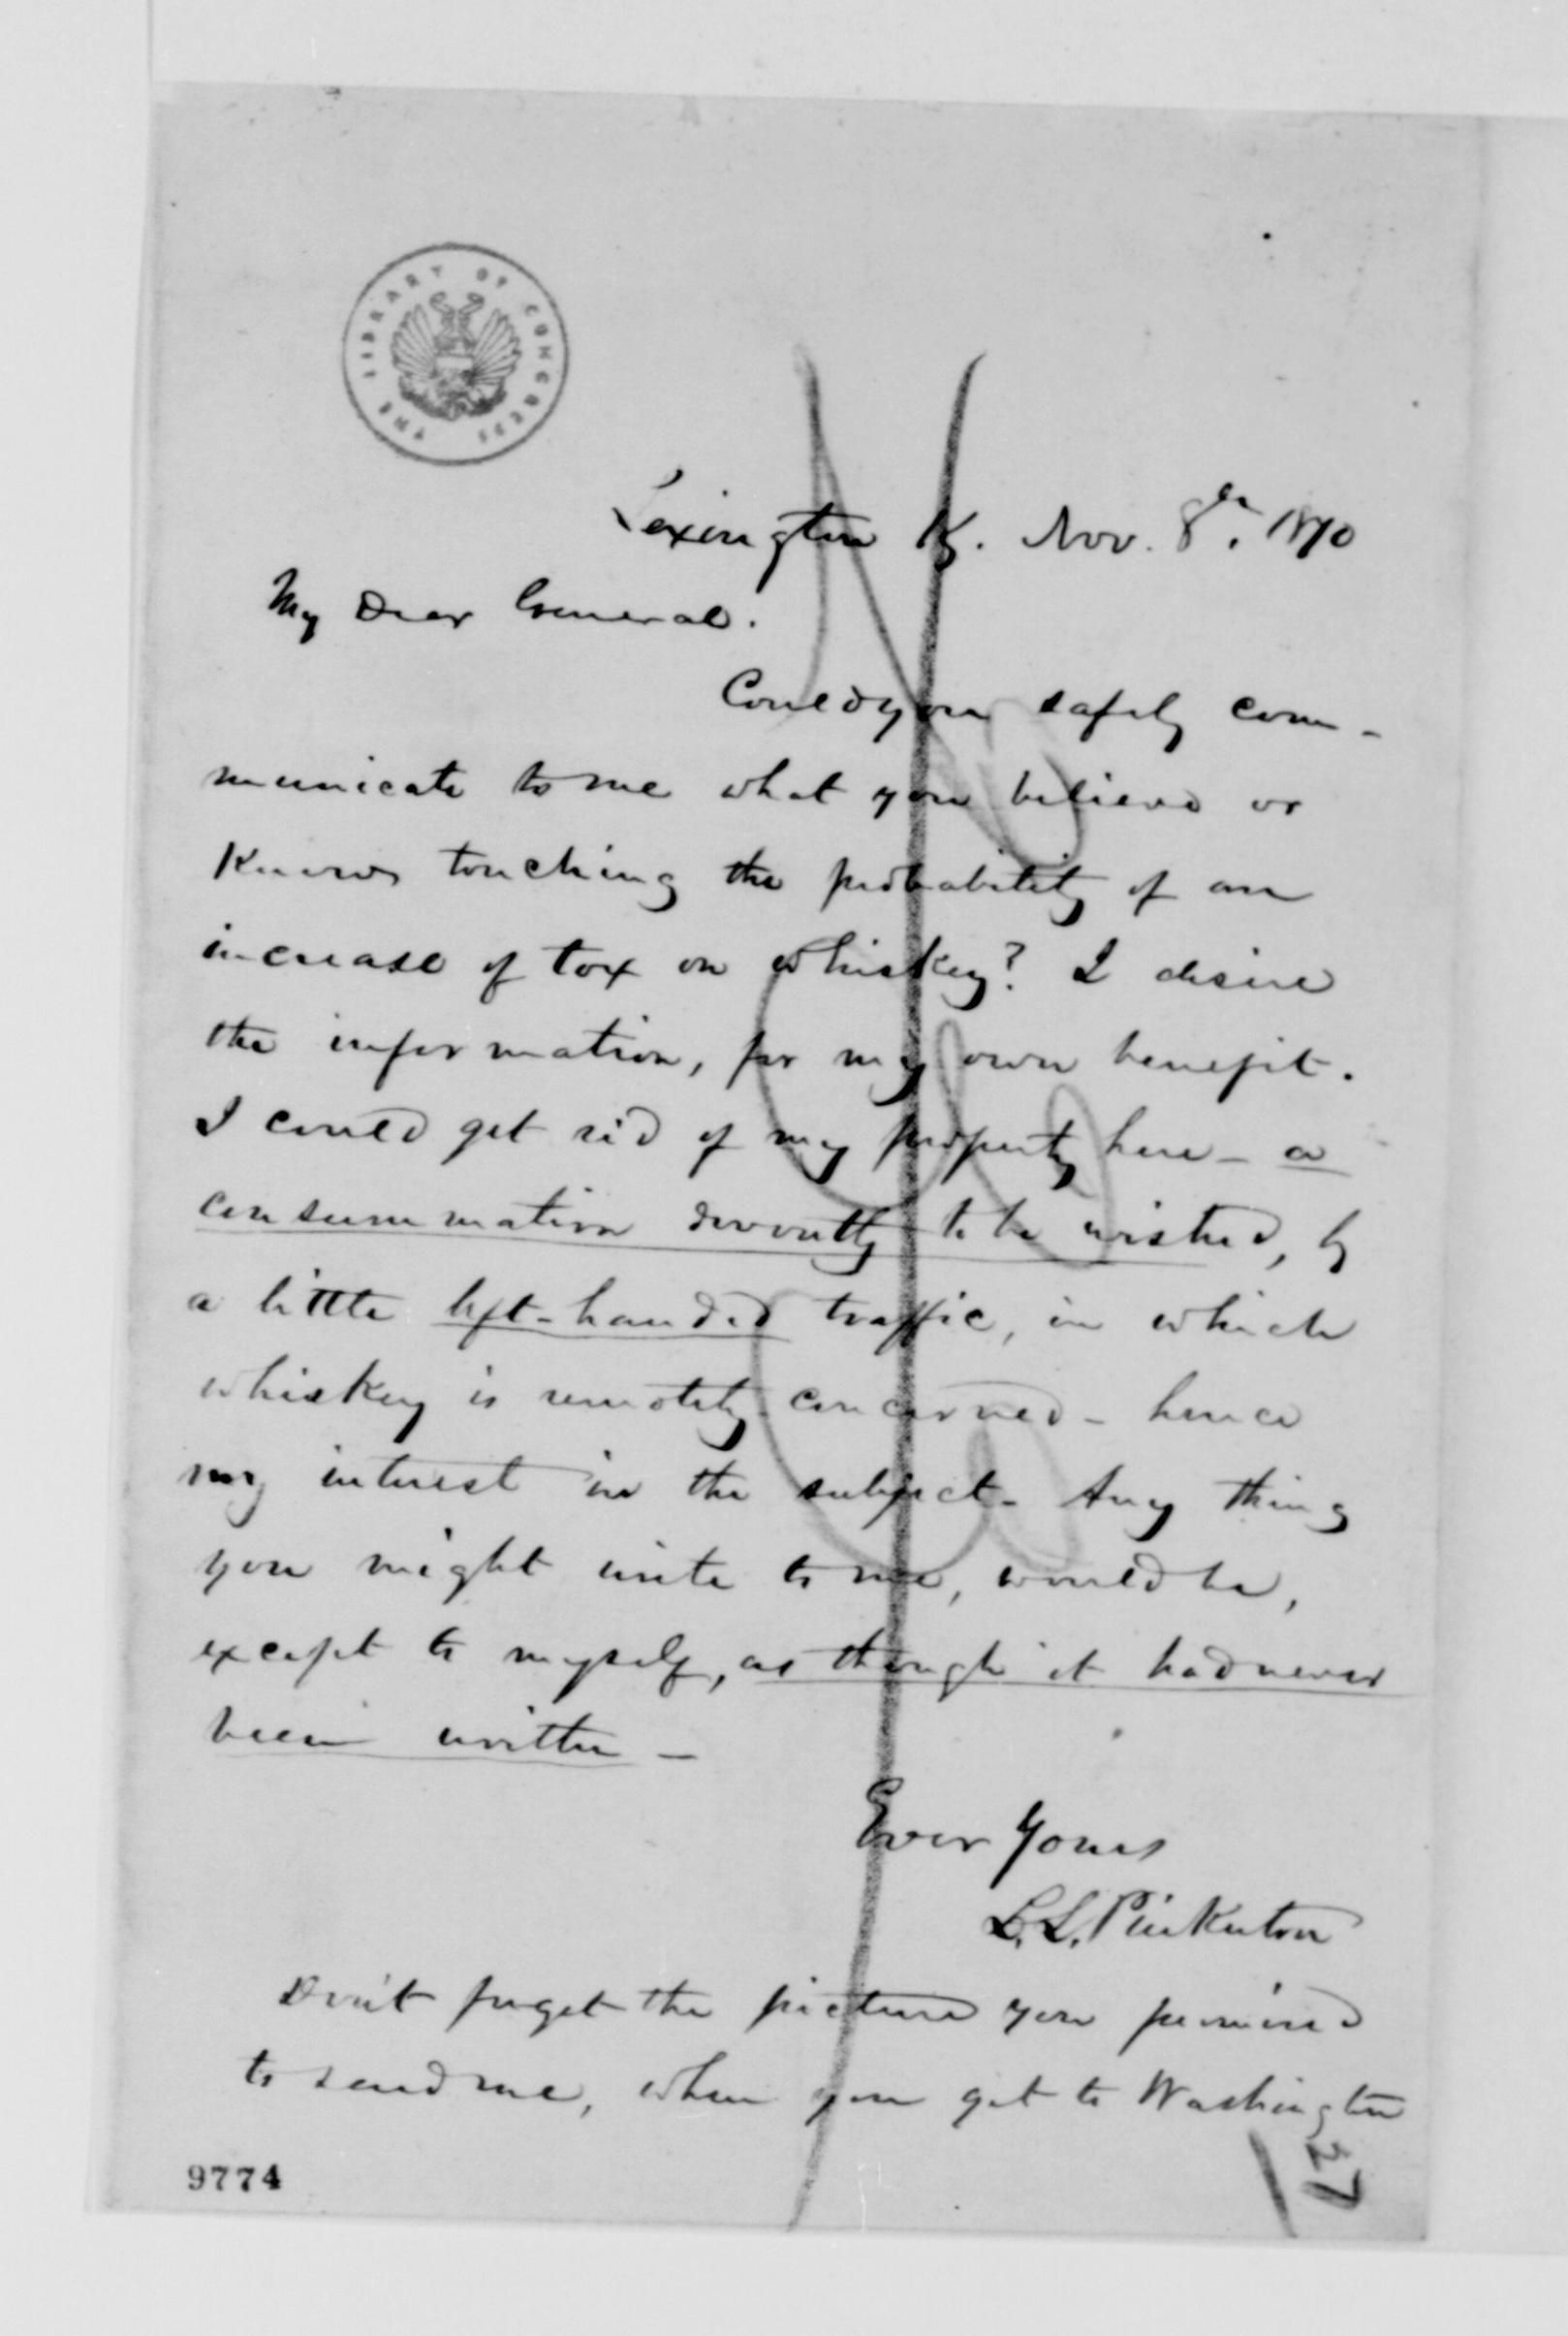 THE LIBRARY OF CONGRESS
Lexington Ky. Nov. 8th. 1870
My Dear General.
Could you safely com-
municate to me what you believe or
Know touching the probability of an
increase of tax on whiskey? I desire
the information, for my own benefit.
I could get rid of my property here - a
consummation devoutly to be wished, by
a little left-handed traffic, in which
whiskey is remotely concerned - hence
my interest in the subject - Any thing
you might write to me, would be,
except to myself, as though it had never
been written -
Ever Yours
L. L. Pinkerton
Don't forget the picture you promised
to send me, when you get to Washington
27
9774